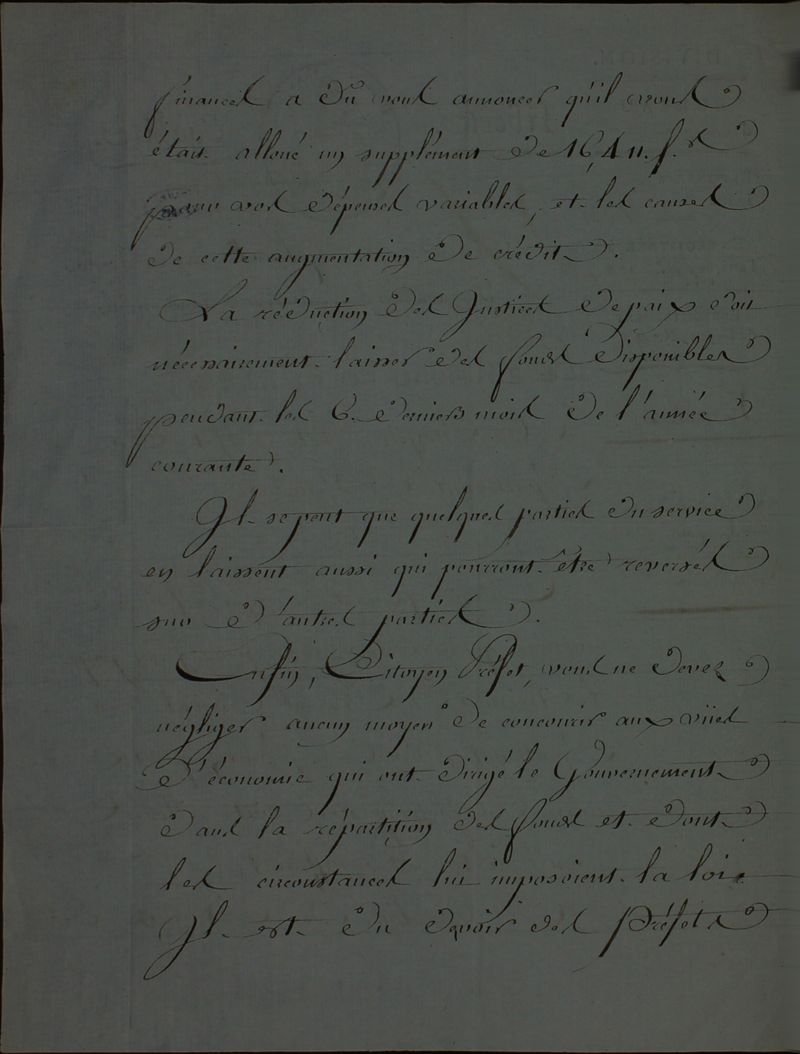 finances a dû vous annoncer qu'il vous
était alloué un supplément de 16,411. f.s
pour vos dépenses variables, et les causes
de cette augmentation de crédit.
La réduction des Justices de paix doit
nécessairement laisser des fonds disponibles
pendant les 6 derniers mois de l'année
courante.
Il se peut que quelques parties du service
en laissent aussi qui pourront être reversés
sur d'autres parties.
Enfin, Citoyen Préfet, vous ne devez
négliger aucun moyen de concourir aux vües
d'économie qui ont dirigé le Gouvernement
dans la répartition des fonds et dont
les circonstances lui imposoient la loi.
Il est du devoir des Préfets